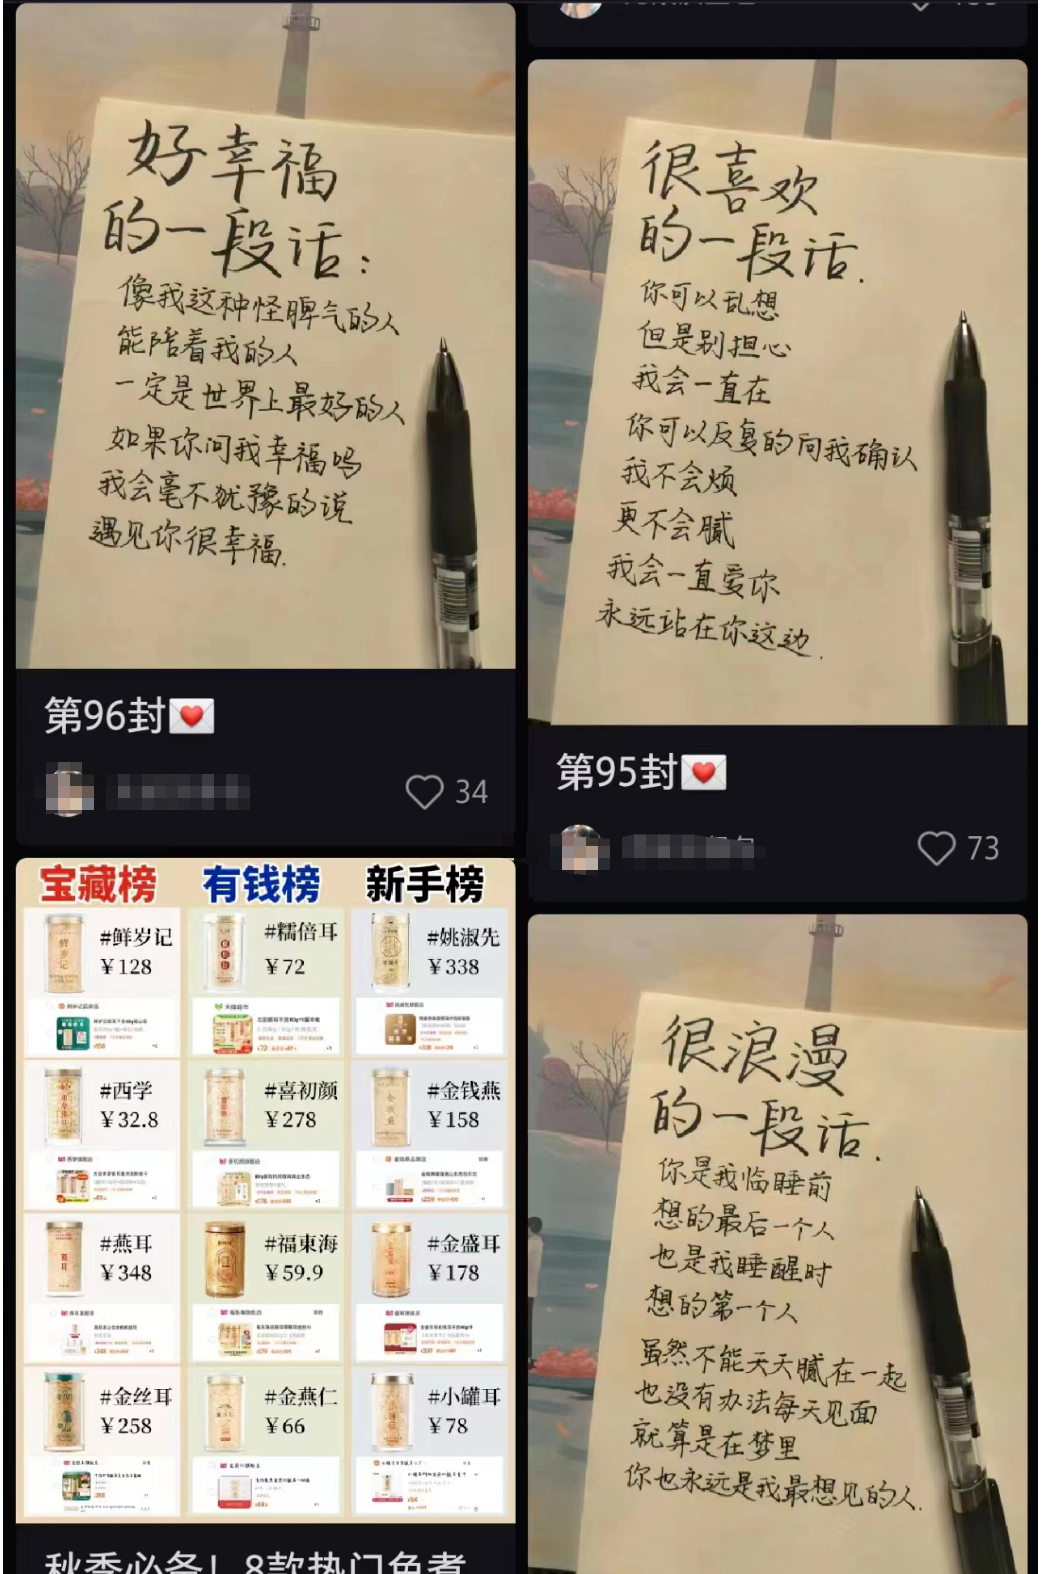 好幸福
的一段话：
像我这种怪脾气的人
能陪着我的人
一定是世界上最好的人
如果你问我幸福吗
我会毫不犹豫的说
遇见你很幸福.
第96封
34
很喜欢
的一段话.
你可以乱想
但是别担心
我会一直在
你可以反复的向我确认
我不会烦
更不会腻
我会一直爱你
永远站在你这边.
第95封
73
宝藏榜 有钱榜 新手榜
#鲜岁记 #糯倍耳 #姚淑先
￥128 ￥72 ￥338
#西学 #喜初颜 #金钱燕
￥32.8 ￥278 ￥158
#燕耳 #福東海 #金盛耳
￥348 ￥59.9 ￥178
#金丝耳 #金燕仁 #小罐耳
￥258 ￥66 ￥78
秋季必备！8款热门免煮
很浪漫
的一段话.
你是我临睡前
想的最后一个人
也是我睡醒时
想的第一个人
虽然不能天天腻在一起
也没有办法每天见面
就算是在梦里
你也永远是我最想见的人.